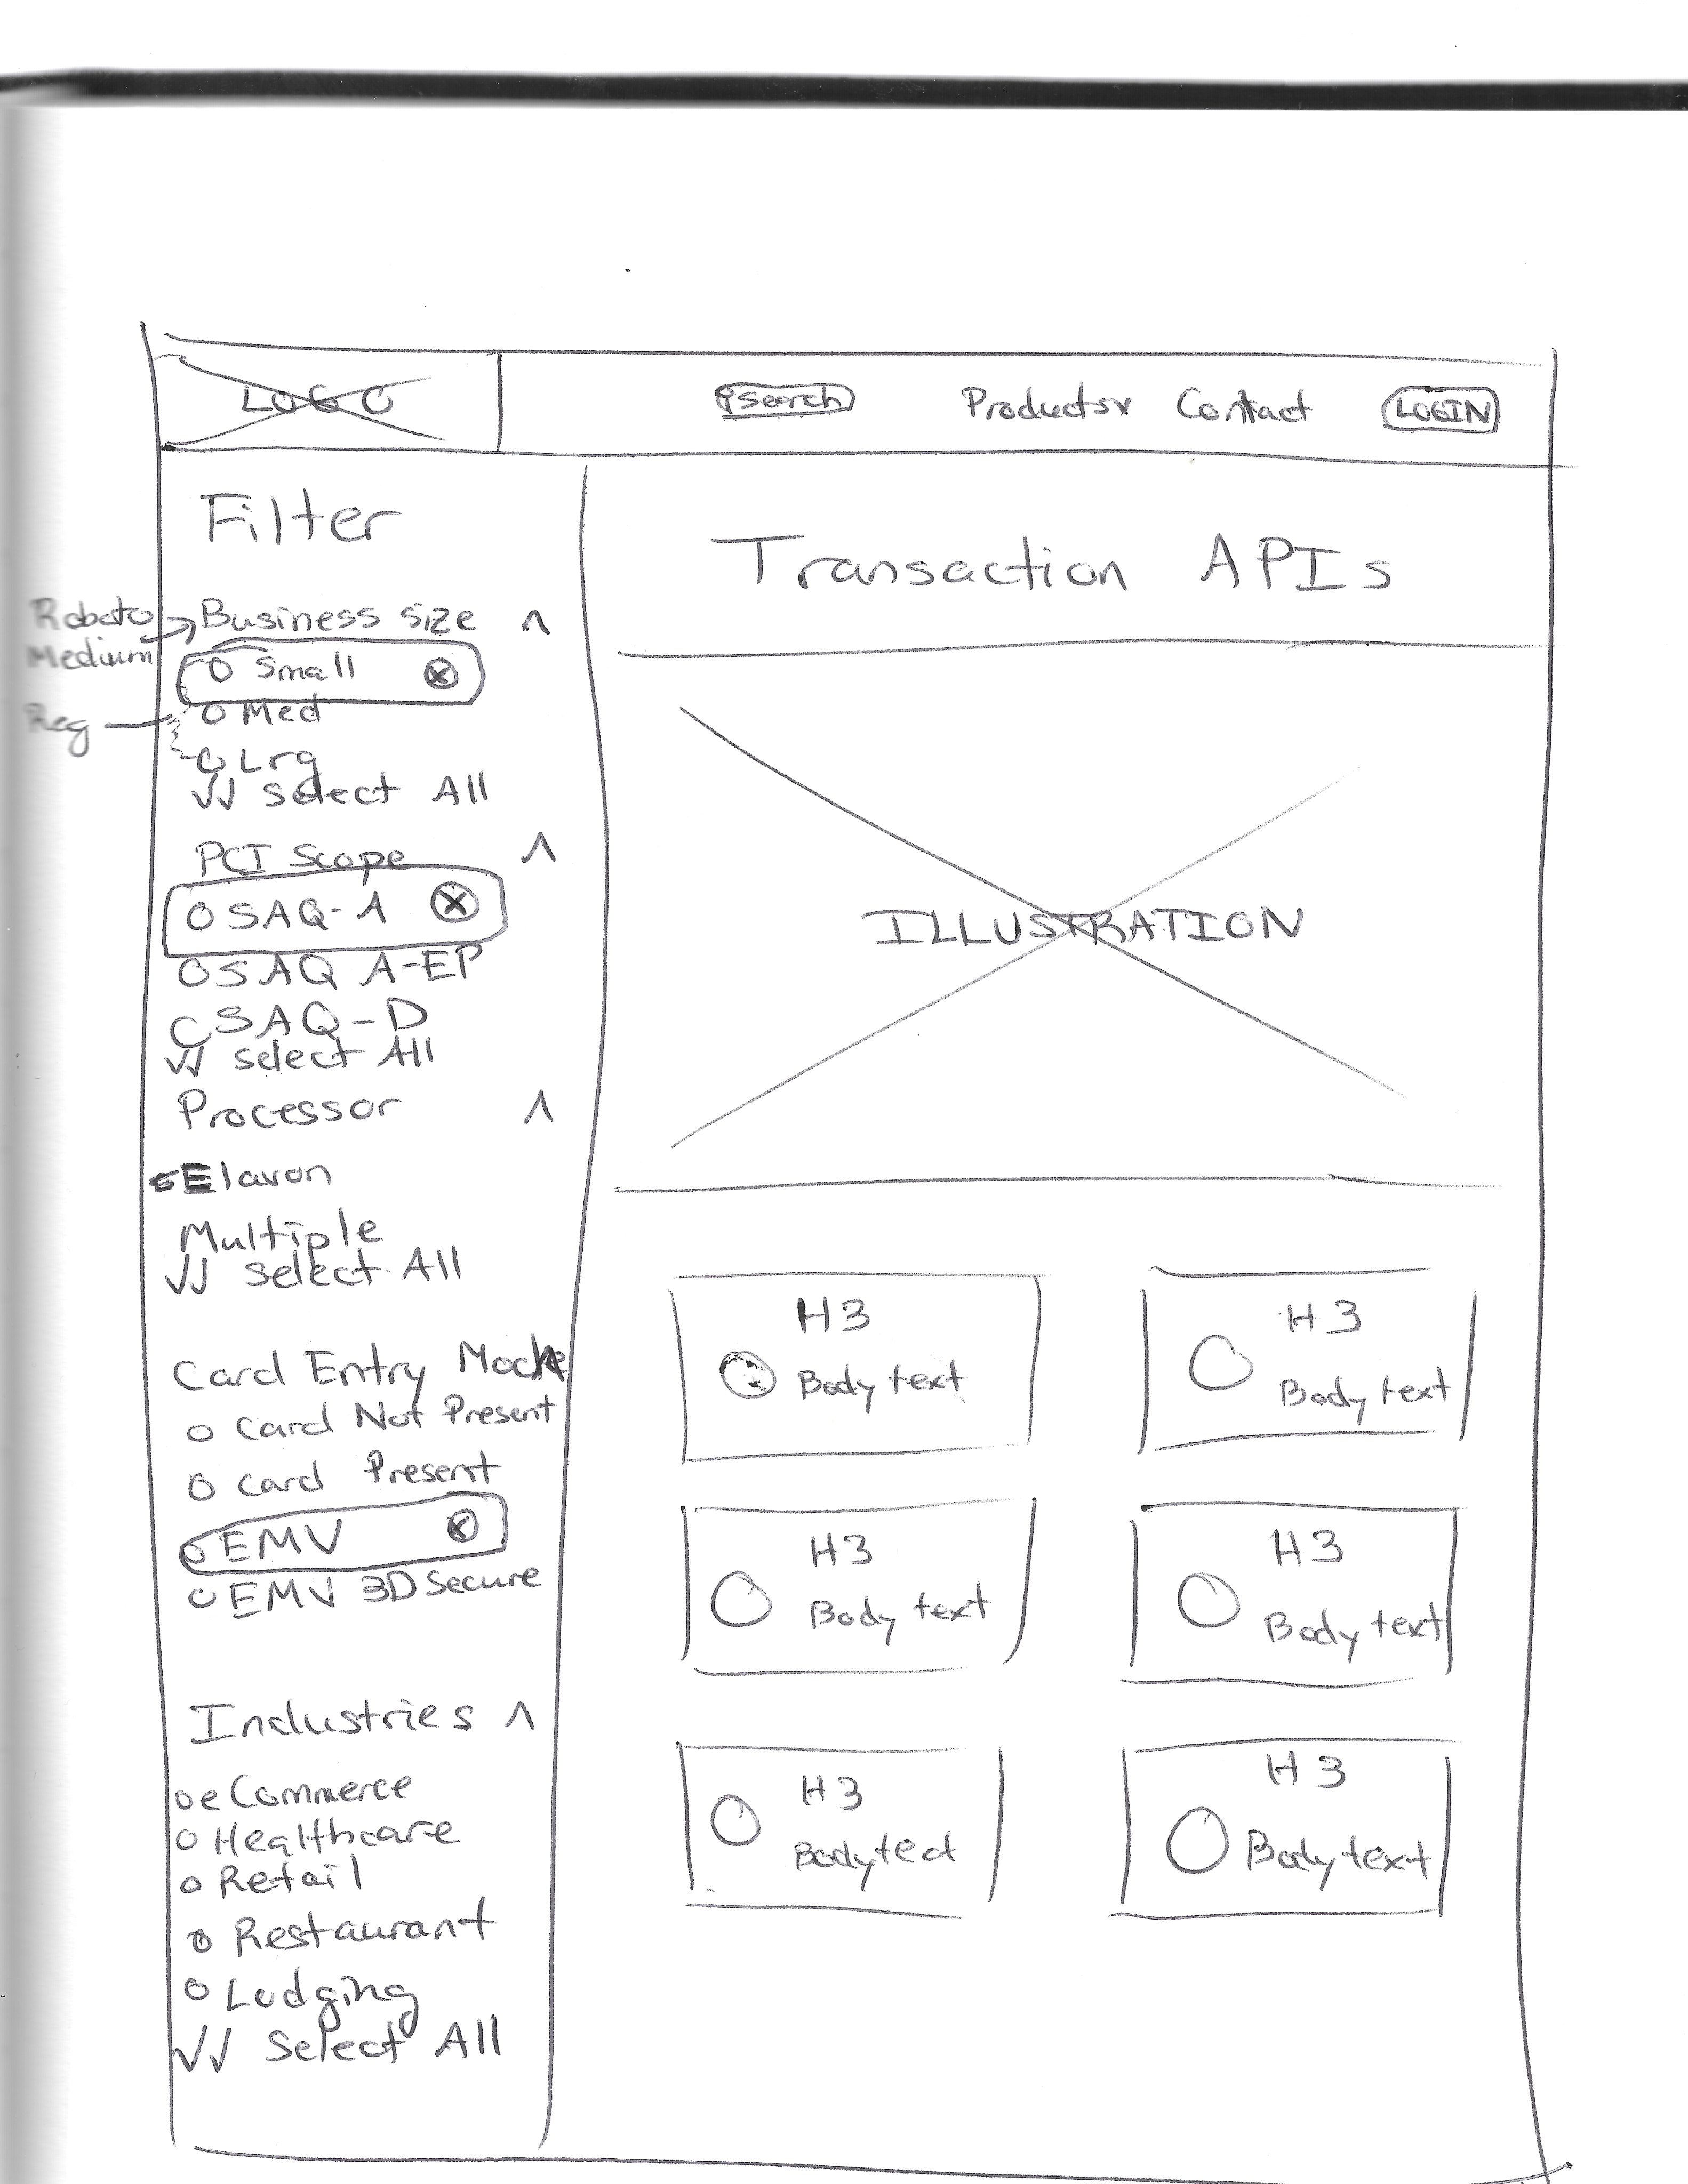 LOGO
Search Products Contact LOGIN
Filter
Roboto
Medium
Business size
Small
Reg
Med
Lrg
Select All
PCI Scope
SAQ-A
SAQ A-EP
SAQ-D
Select All
Processor
Elavon
Multiple
Select All
Card Entry Mode
Card Not Present
Card Present
EMV
EMV 3D Secure
Industries
eCommerce
Healthcare
Retail
Restaurant
Lodging
Select All
Transaction APIs
ILLUSTRATION
H3
Body text
H3
Body text
H3
Body text
H3
Body text
H3
Body text
H3
Body text